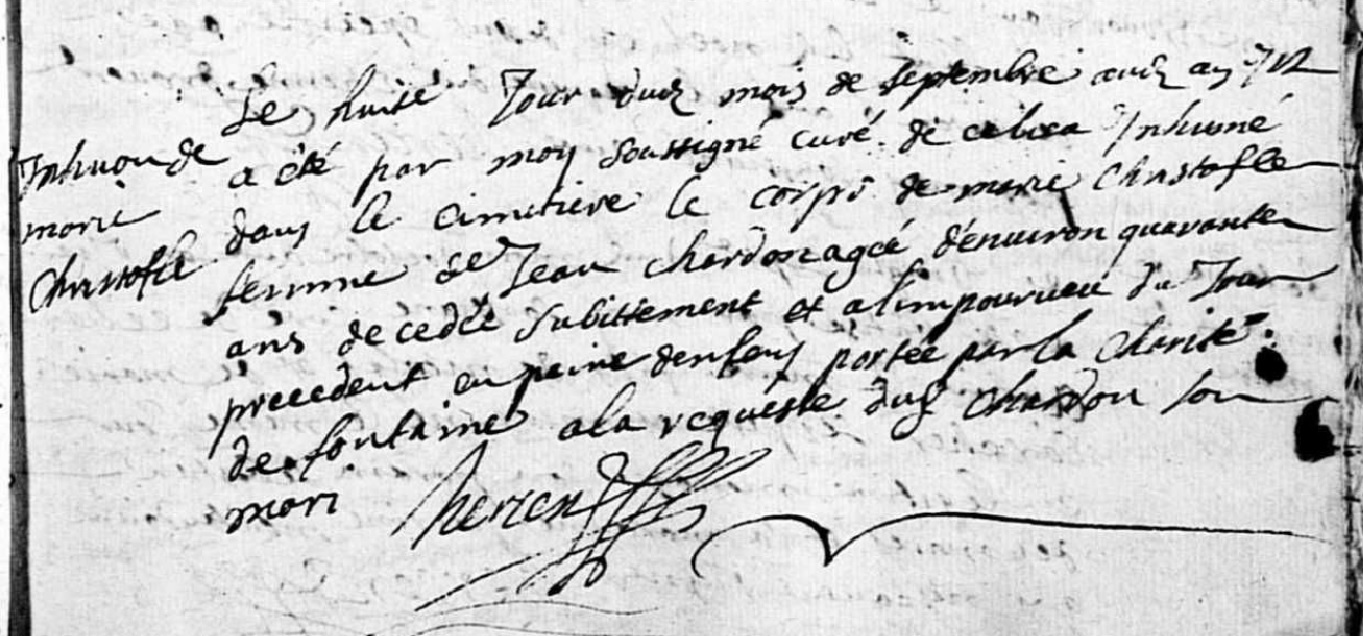 Inhuon de
marie
Christofle
Le huite Jour dud mois de septembre aud an 712
a été par moy soussigné curé de ce lieu Inhumé
dans le cimetiere le corps de marie Christofle
femme de Jean chardon agée d'enuiron quarante
ans decedée subittement et a limpourueu du Jour
precedent en peine denfens portée par la charité
de fontaine a la requeste dud chardon son
mari